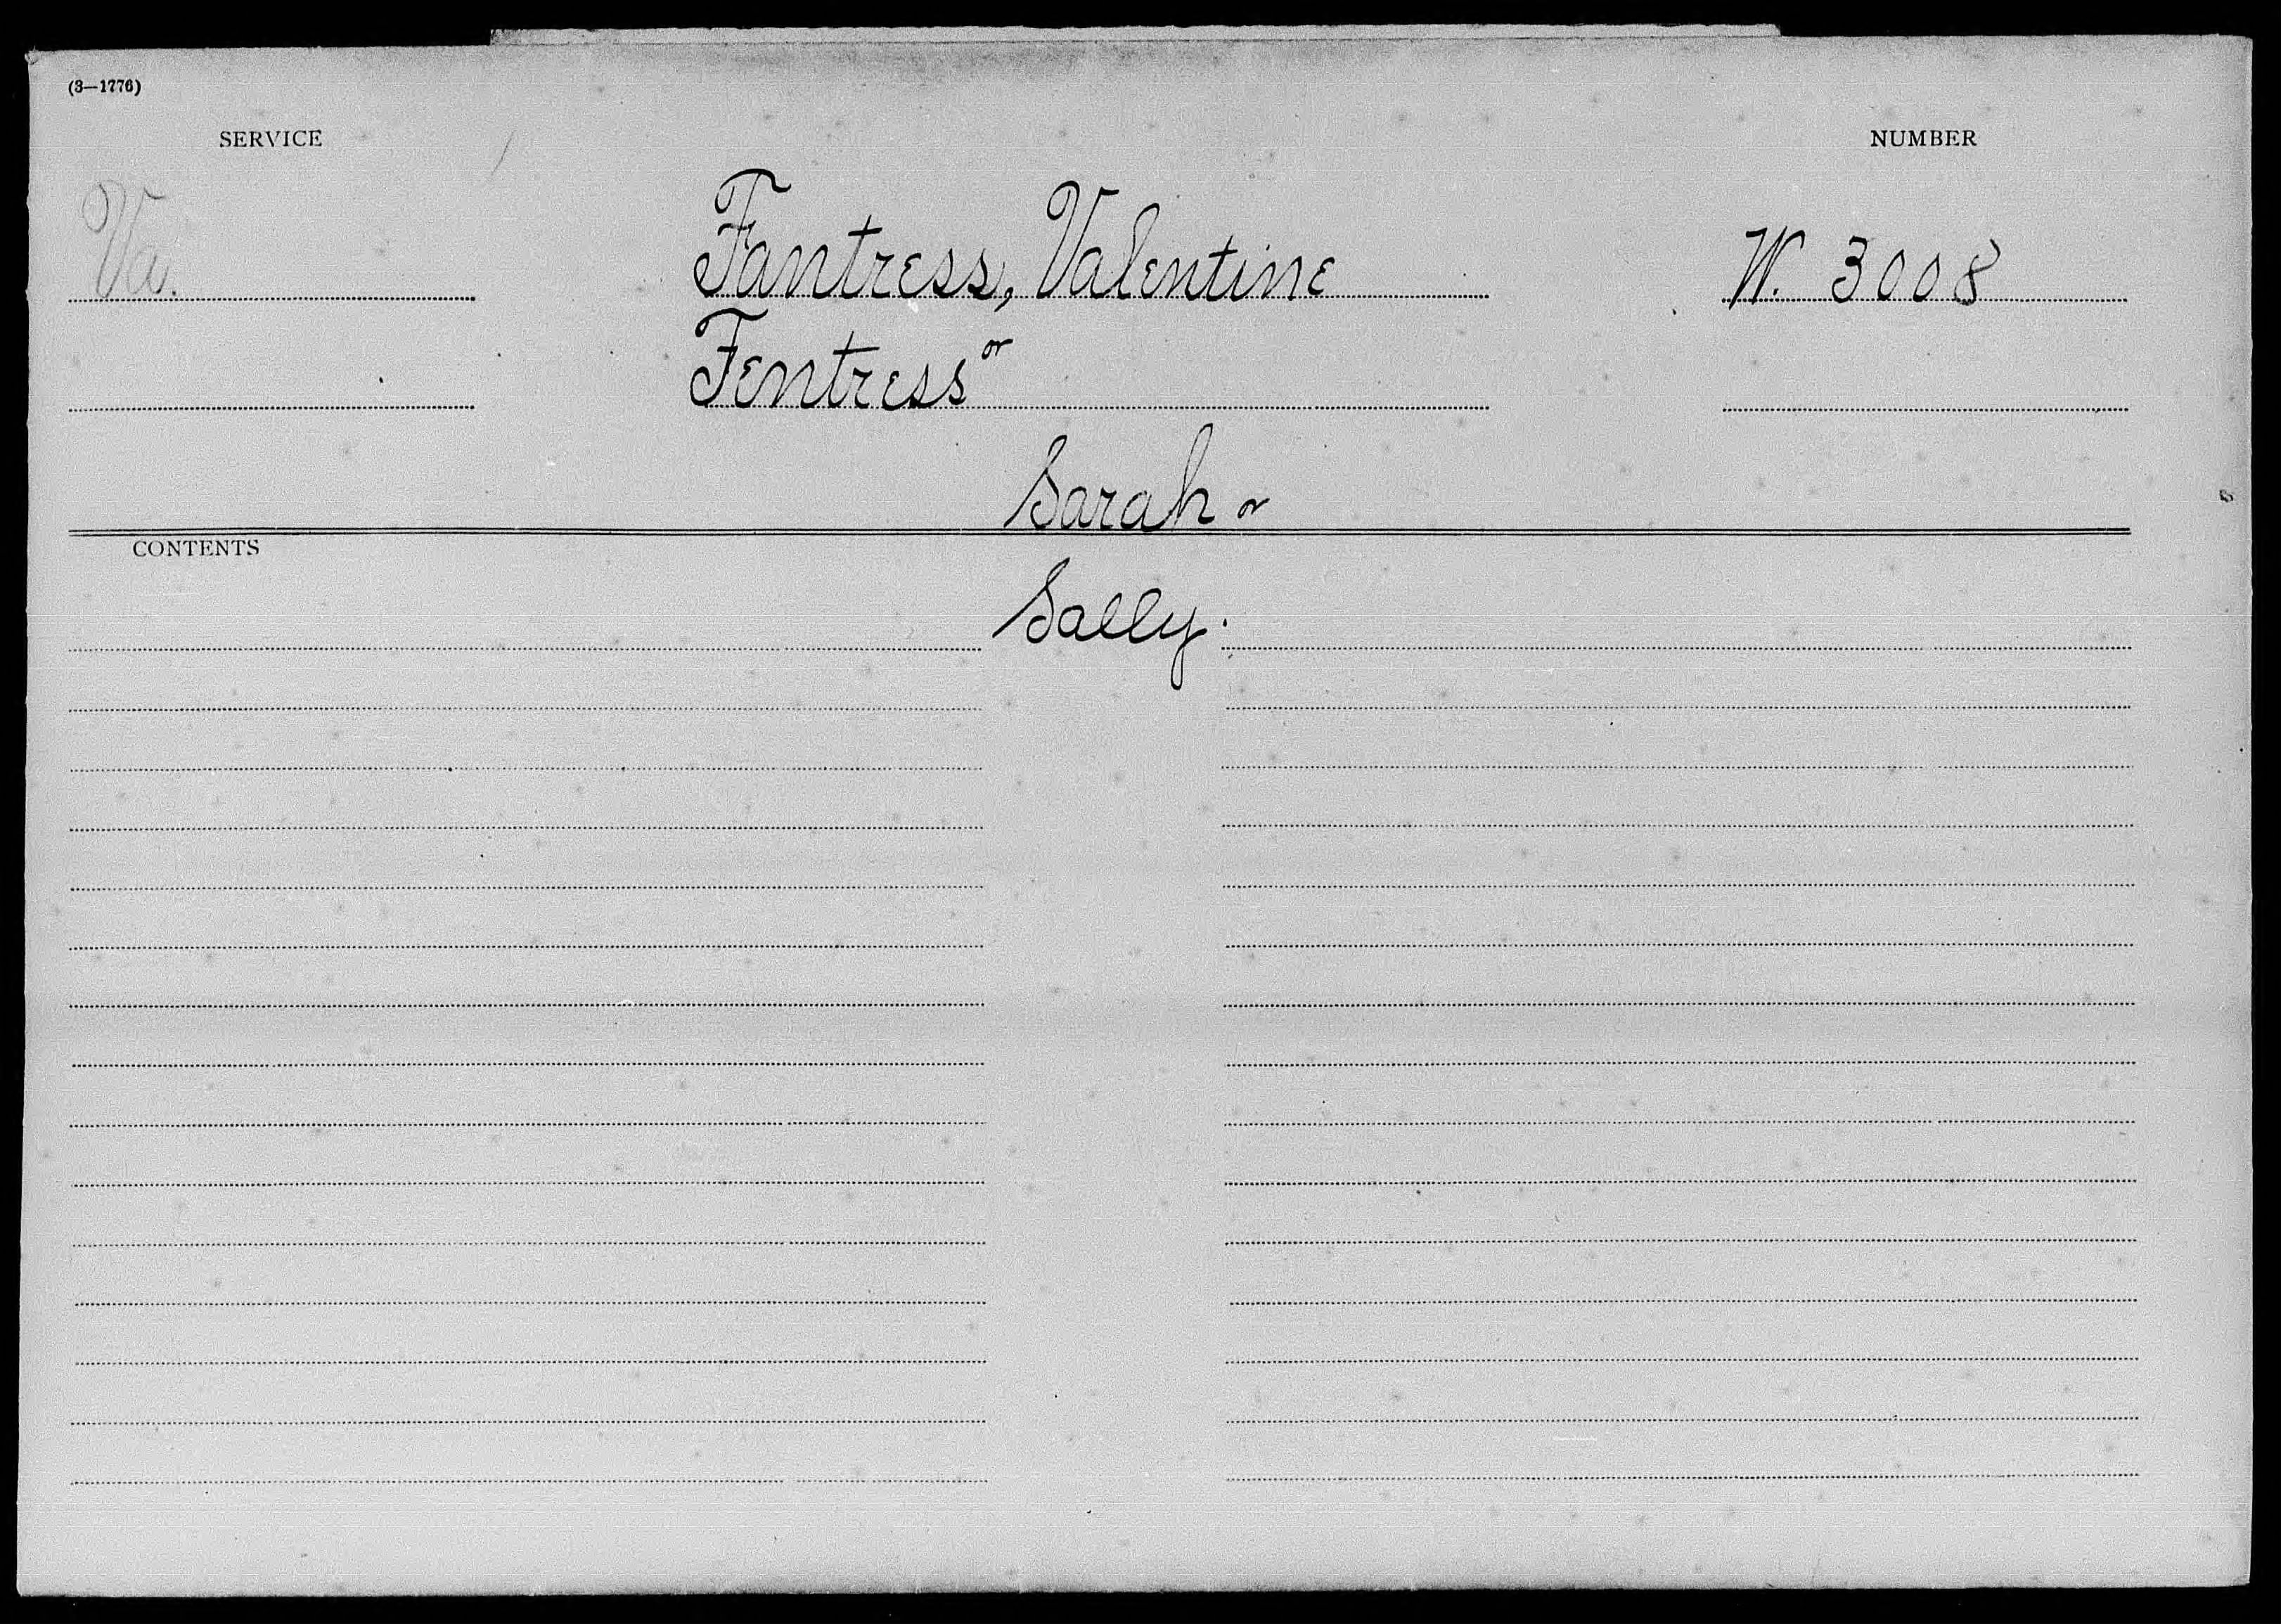 (3—1776)
SERVICE
NUMBER
Va.
Fantress, Valentine
W. 3008
Fentress or
Sarah or
CONTENTS
Sally.